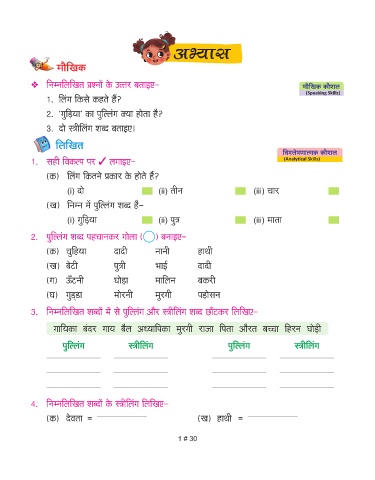 अभ्यास
मौखिक
❖ निम्नलिखित प्रश्नों के उत्तर बताइए–
मौखिक कौशल
(Speaking Skills)
1. लिंग किसे कहते हैं?
2. 'गुड़िया' का पुल्लिंग क्या होता है?
3. दो स्त्रीलिंग शब्द बताइए।
लिखित
विश्लेषणात्मक कौशल
(Analytical Skills)
1. सही विकल्प पर ✓ लगाइए–
(क) लिंग कितने प्रकार के होते हैं?
(i) दो (ii) तीन (iii) चार
(ख) निम्न में पुल्लिंग शब्द है–
(i) गुड़िया (ii) पुत्र (iii) माता
2. पुल्लिंग शब्द पहचानकर गोला ( ◯ ) बनाइए–
(क) चुहिया दादी नानी हाथी
(ख) बेटी पुत्री भाई दादी
(ग) ऊँटनी घोड़ा मालिन बकरी
(घ) गुड्डा मोरनी मुरगी पड़ोसन
3. निम्नलिखित शब्दों में से पुल्लिंग और स्त्रीलिंग शब्द छाँटकर लिखिए–
गायिका बंदर गाय बैल अध्यापिका मुरगी राजा पिता औरत बच्चा हिरन घोड़ी
पुल्लिंग स्त्रीलिंग पुल्लिंग स्त्रीलिंग
4. निम्नलिखित शब्दों के स्त्रीलिंग लिखिए–
(क) देवता = (ख) हाथी =
1 # 30